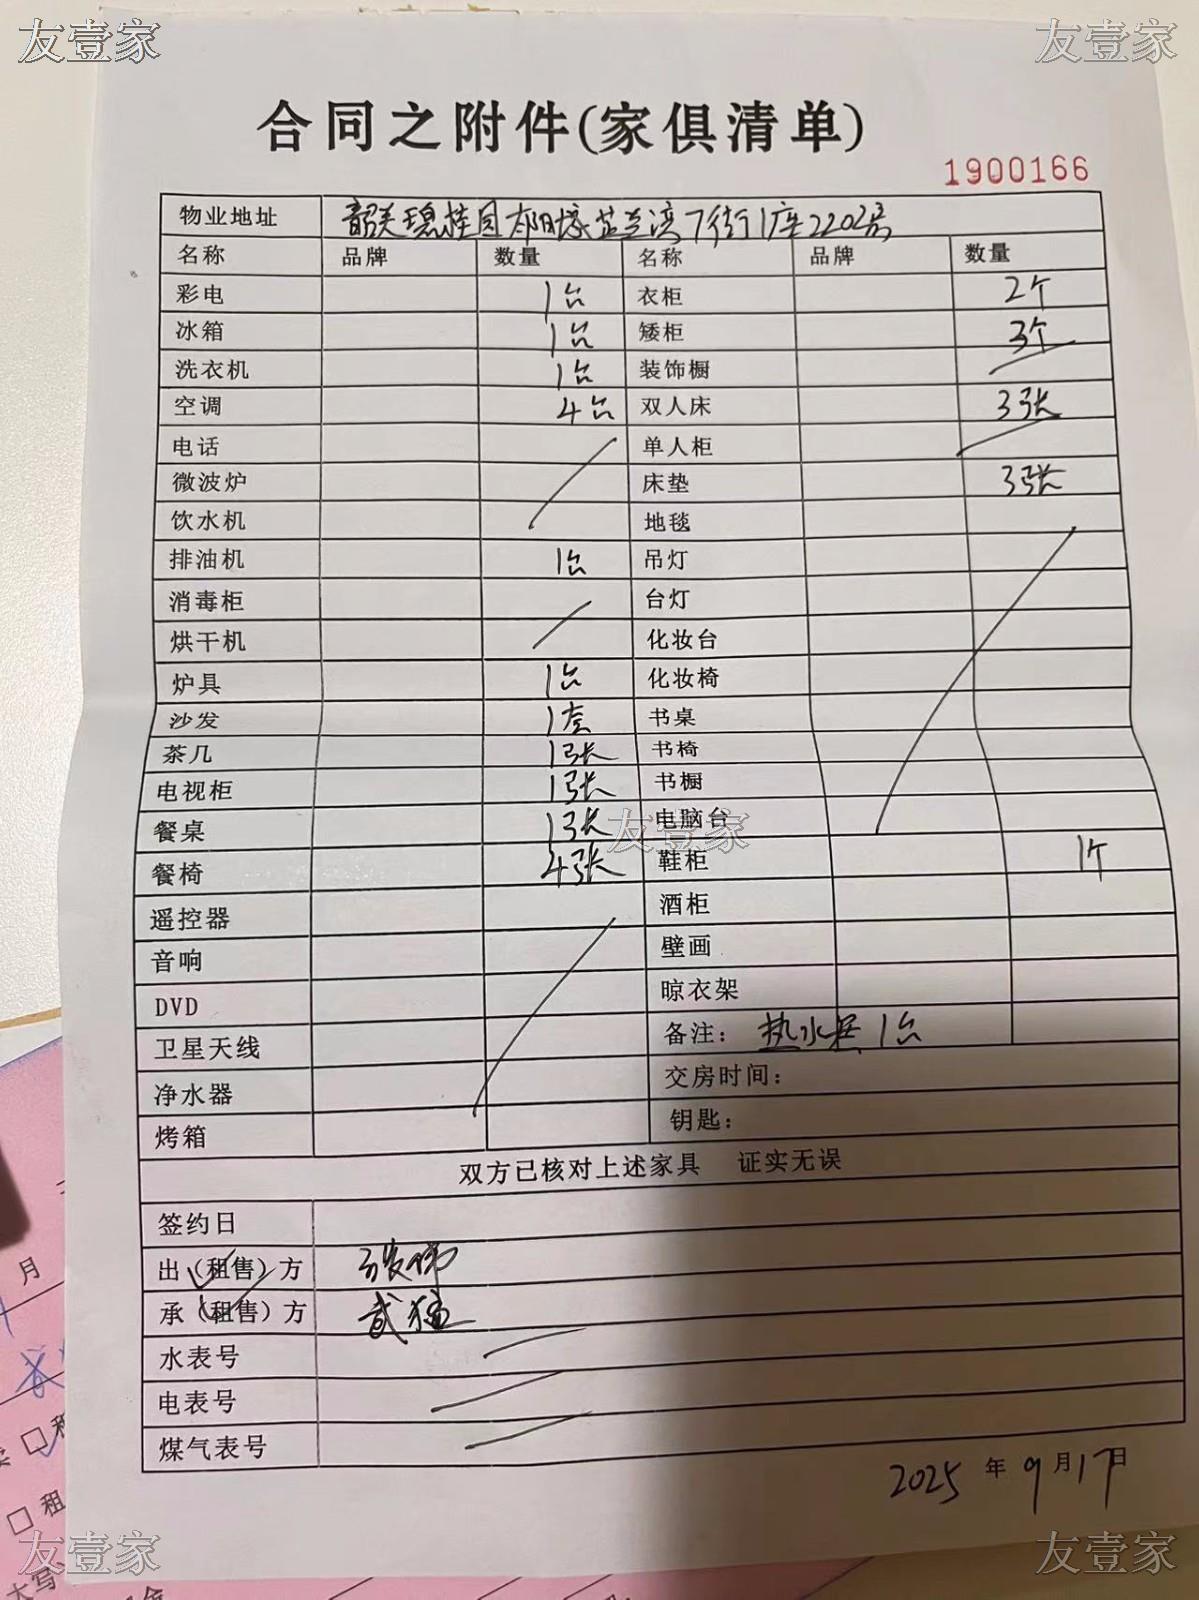 友壹家 友壹家
合同之附件(家俱清单)
1900166
物业地址 韶关碧桂园太阳城芷兰湾7街1座2202号
名称 品牌 数量 名称 品牌 数量
彩电 1台 衣柜 2个
冰箱 1台 矮柜 3个
洗衣机 1台 装饰橱
空调 4台 双人床 3张
电话 单人柜
微波炉 床垫 3张
饮水机 地毯
排油机 1台 吊灯
消毒柜 台灯
烘干机 化妆台
炉具 1台 化妆椅
沙发 1套 书桌
茶几 1张 书椅
电视柜 1张 书橱
餐桌 1张 友壹家 电脑台
餐椅 4张 鞋柜 1个
遥控器 酒柜
音响 壁画
DVD 晾衣架
卫星天线 备注: 热水器1台
净水器 交房时间:
烤箱 钥匙:
双方已核对上述家具 证实无误
签约日
出(租售)方
承(租售)方 武猛
水表号
电表号
煤气表号
2025 年 9 月 17 日
月
租
租
大写
友壹家 友壹家